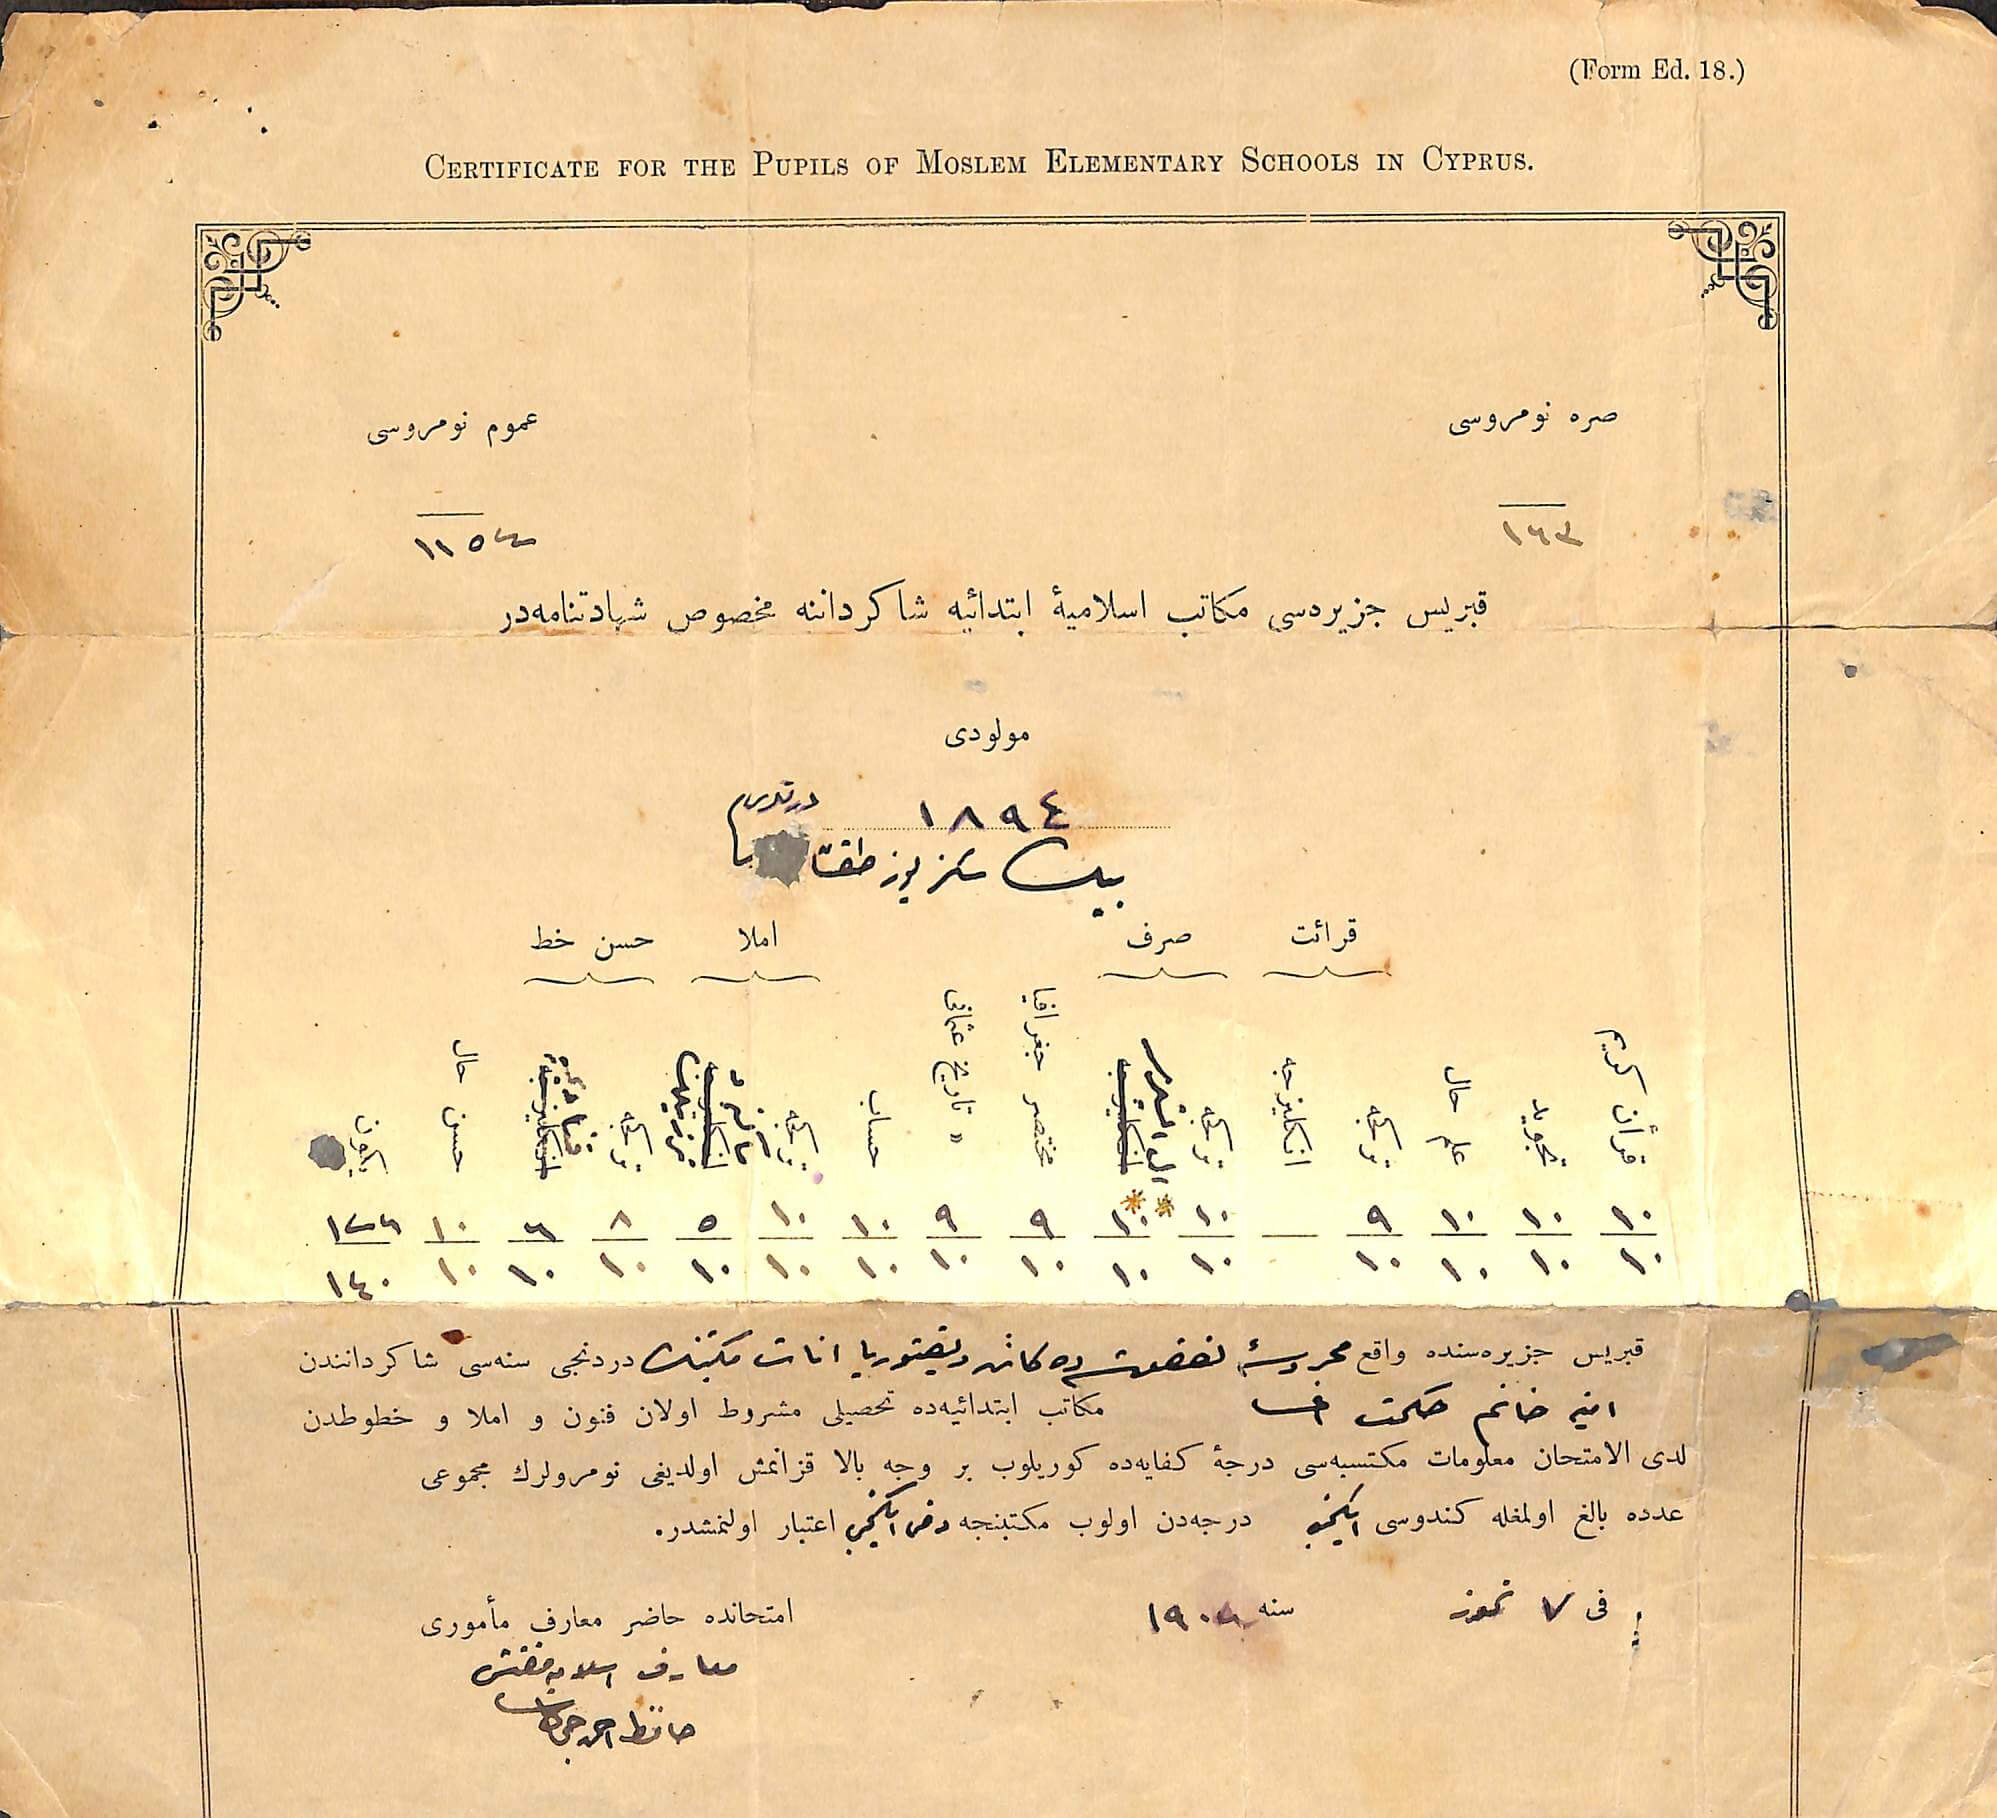 (Form Ed. 18.)
CERTIFICATE FOR THE PUPILS OF MOSLEM ELEMENTARY SCHOOLS IN CYPRUS.
صره نومروسی
عموم نومروسی
١٦٣
١١٥٤
قبریس جزیره‌سی مکاتب اسلامیهٔ ابتدائیه شاکرداننه مخصوص شهادتنامه‌در
مولودی
١٨٩٤
بیك سکز یوز طقسان
قرائت صرف املا حسن خط
قرآن کریم تجوید علم حال ترکجه انکلیزجه ترکجه انکلیزجه مختصر جغرافیا " تاریخ عثمانی حساب ترکجه انکلیزجه ترکجه انکلیزجه حسن حال یکون
١٠ ١٠ ١٠ ٩ ١٠ ١٠ ٩ ٩ ١٠ ١٠ ٥ ٨ ٦ ١٠ ١٢٦
١٠ ١٠ ١٠ ١٠ ١٠ ١٠ ١٠ ١٠ ١٠ ١٠ ١٠ ١٠ ١٠ ١٠ ١٤٠
قبریس جزیره‌سنده واقع محروسهٔ ده کائن ویقتوریا اناث مکتبنك دردنجی سنه‌سی شاکردانندن
امنیه خانم حکمت مکاتب ابتدائیه‌ده تحصیلی مشروط اولان فنون و املا و خطوطدن
لدی الامتحان معلومات مکتسبه‌سی درجهٔ کفایه‌ده کوریلوب بر وجه بالا قزانمش اولدیغی نومرولرك مجموعی
عدده بالغ اولمغله کندوسی ایکنجی درجه‌دن اولوب مکتبنجه دخی ایکنجی اعتبار اولنمشدر.
فی ٧ تموز سنه ١٩٠٨
امتحانده حاضر معارف مأموری
معارف اسلامیه مفتشی
حافظ احمد